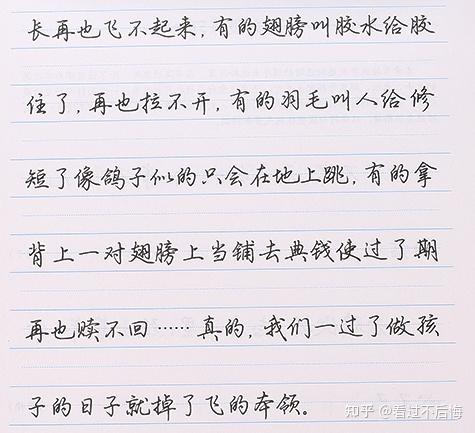 长再也飞不起来,有的翅膀叫胶水给胶
住了,再也拉不开,有的羽毛叫人给修
短了像鸽子似的只会在地上跳,有的拿
背上一对翅膀上当铺去典钱使过了期
再也赎不回……真的,我们一过了做孩
子的日子就掉了飞的本领。
知乎 @看过不后悔